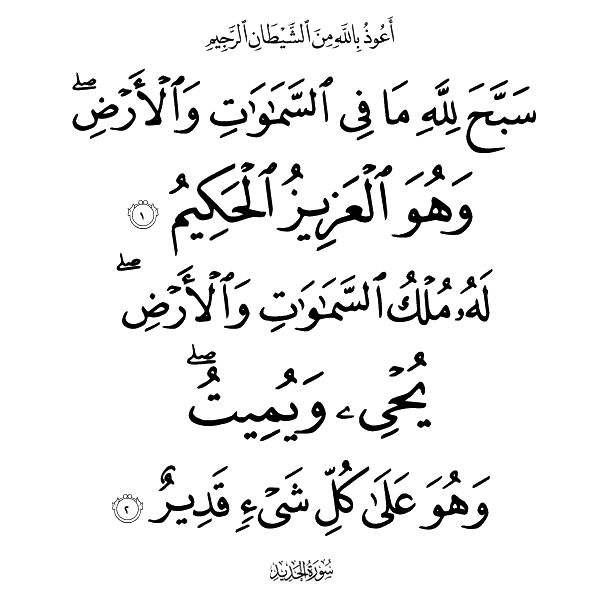 أَعُوذُ بِاللَّهِ مِنَ الشَّيْطَانِ الرَّجِيمِ
سَبَّحَ لِلَّهِ مَا فِي ٱلسَّمَٰوَٰتِ وَٱلْأَرْضِۖ
وَهُوَ ٱلْعَزِيزُ ٱلْحَكِيمُ ١
لَهُۥ مُلْكُ ٱلسَّمَٰوَٰتِ وَٱلْأَرْضِۖ
يُحْيِۦ وَيُمِيتُۖ
وَهُوَ عَلَىٰ كُلِّ شَىْءٍ قَدِيرٌ ٢
سُورَةُ الحَدِيدِ